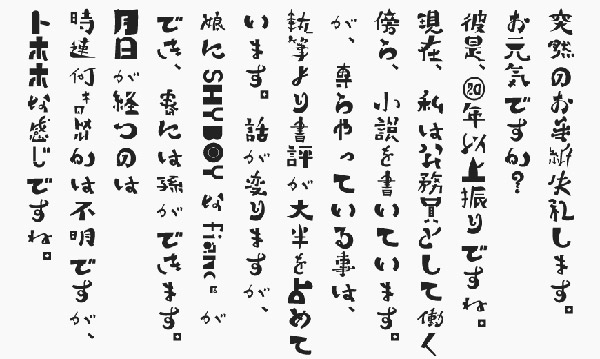 突然のお手紙失礼します。
お元気ですか?
彼是、⑳年以上振りですね。
現在、私は公務員として働く
傍ら、小説を書いています。
が、専らやっている事は、
執筆より書評が大半を占めて
います。話が変りますが、
娘に SHYBOY な fiancé が
でき、には孫ができます。
月日が経つのは
時速何かは不明ですが、
トホホな感じですね。